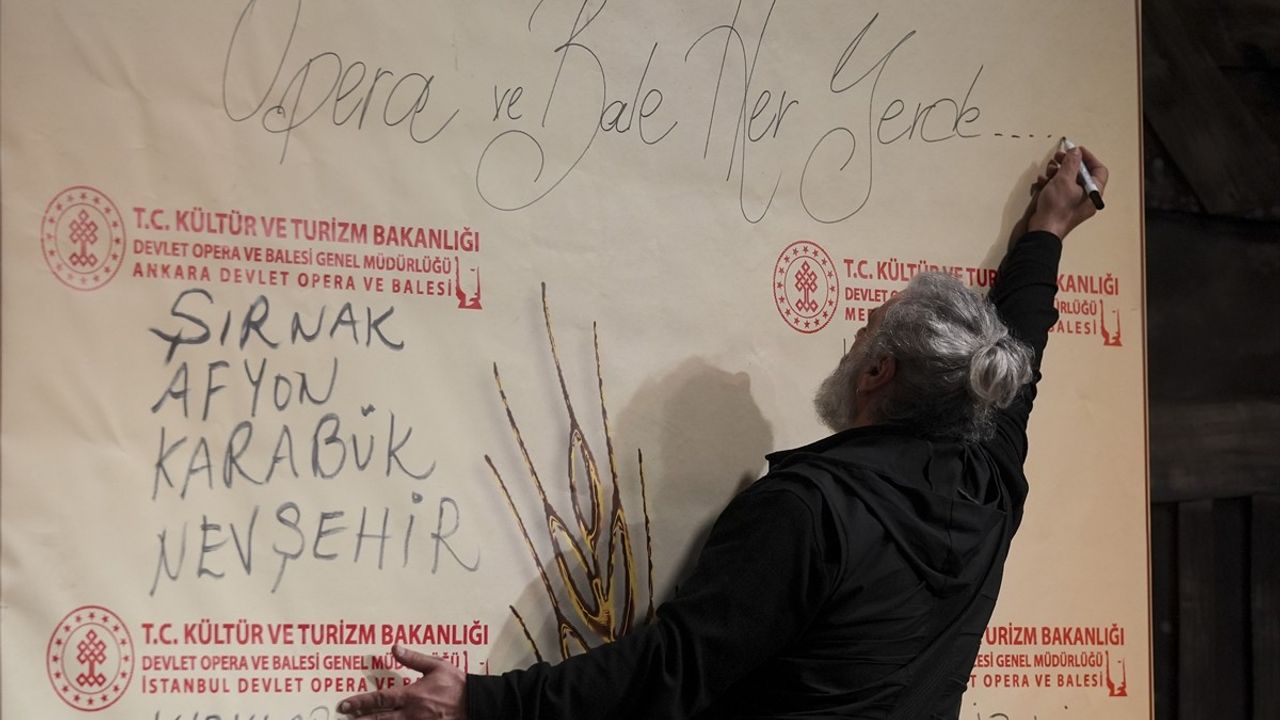 Opera ve Bale Her Yerde......
T.C. KÜLTÜR VE TURİZM BAKANLIĞI
DEVLET OPERA VE BALESİ GENEL MÜDÜRLÜĞÜ
ANKARA DEVLET OPERA VE BALESİ
ŞIRNAK
AFYON
KARABÜK
NEVŞEHİR
T.C. KÜLTÜR VE TURİZM BAKANLIĞI
DEVLET
BALESİ
T.C. KÜLTÜR VE TURİZM BAKANLIĞI
DEVLET OPERA VE BALESİ GENEL MÜDÜRLÜĞÜ
İSTANBUL DEVLET OPERA VE BALESİ
TURİZM BAKANLIĞI
BALESİ GENEL MÜDÜRLÜĞÜ
OPERA VE BALESİ